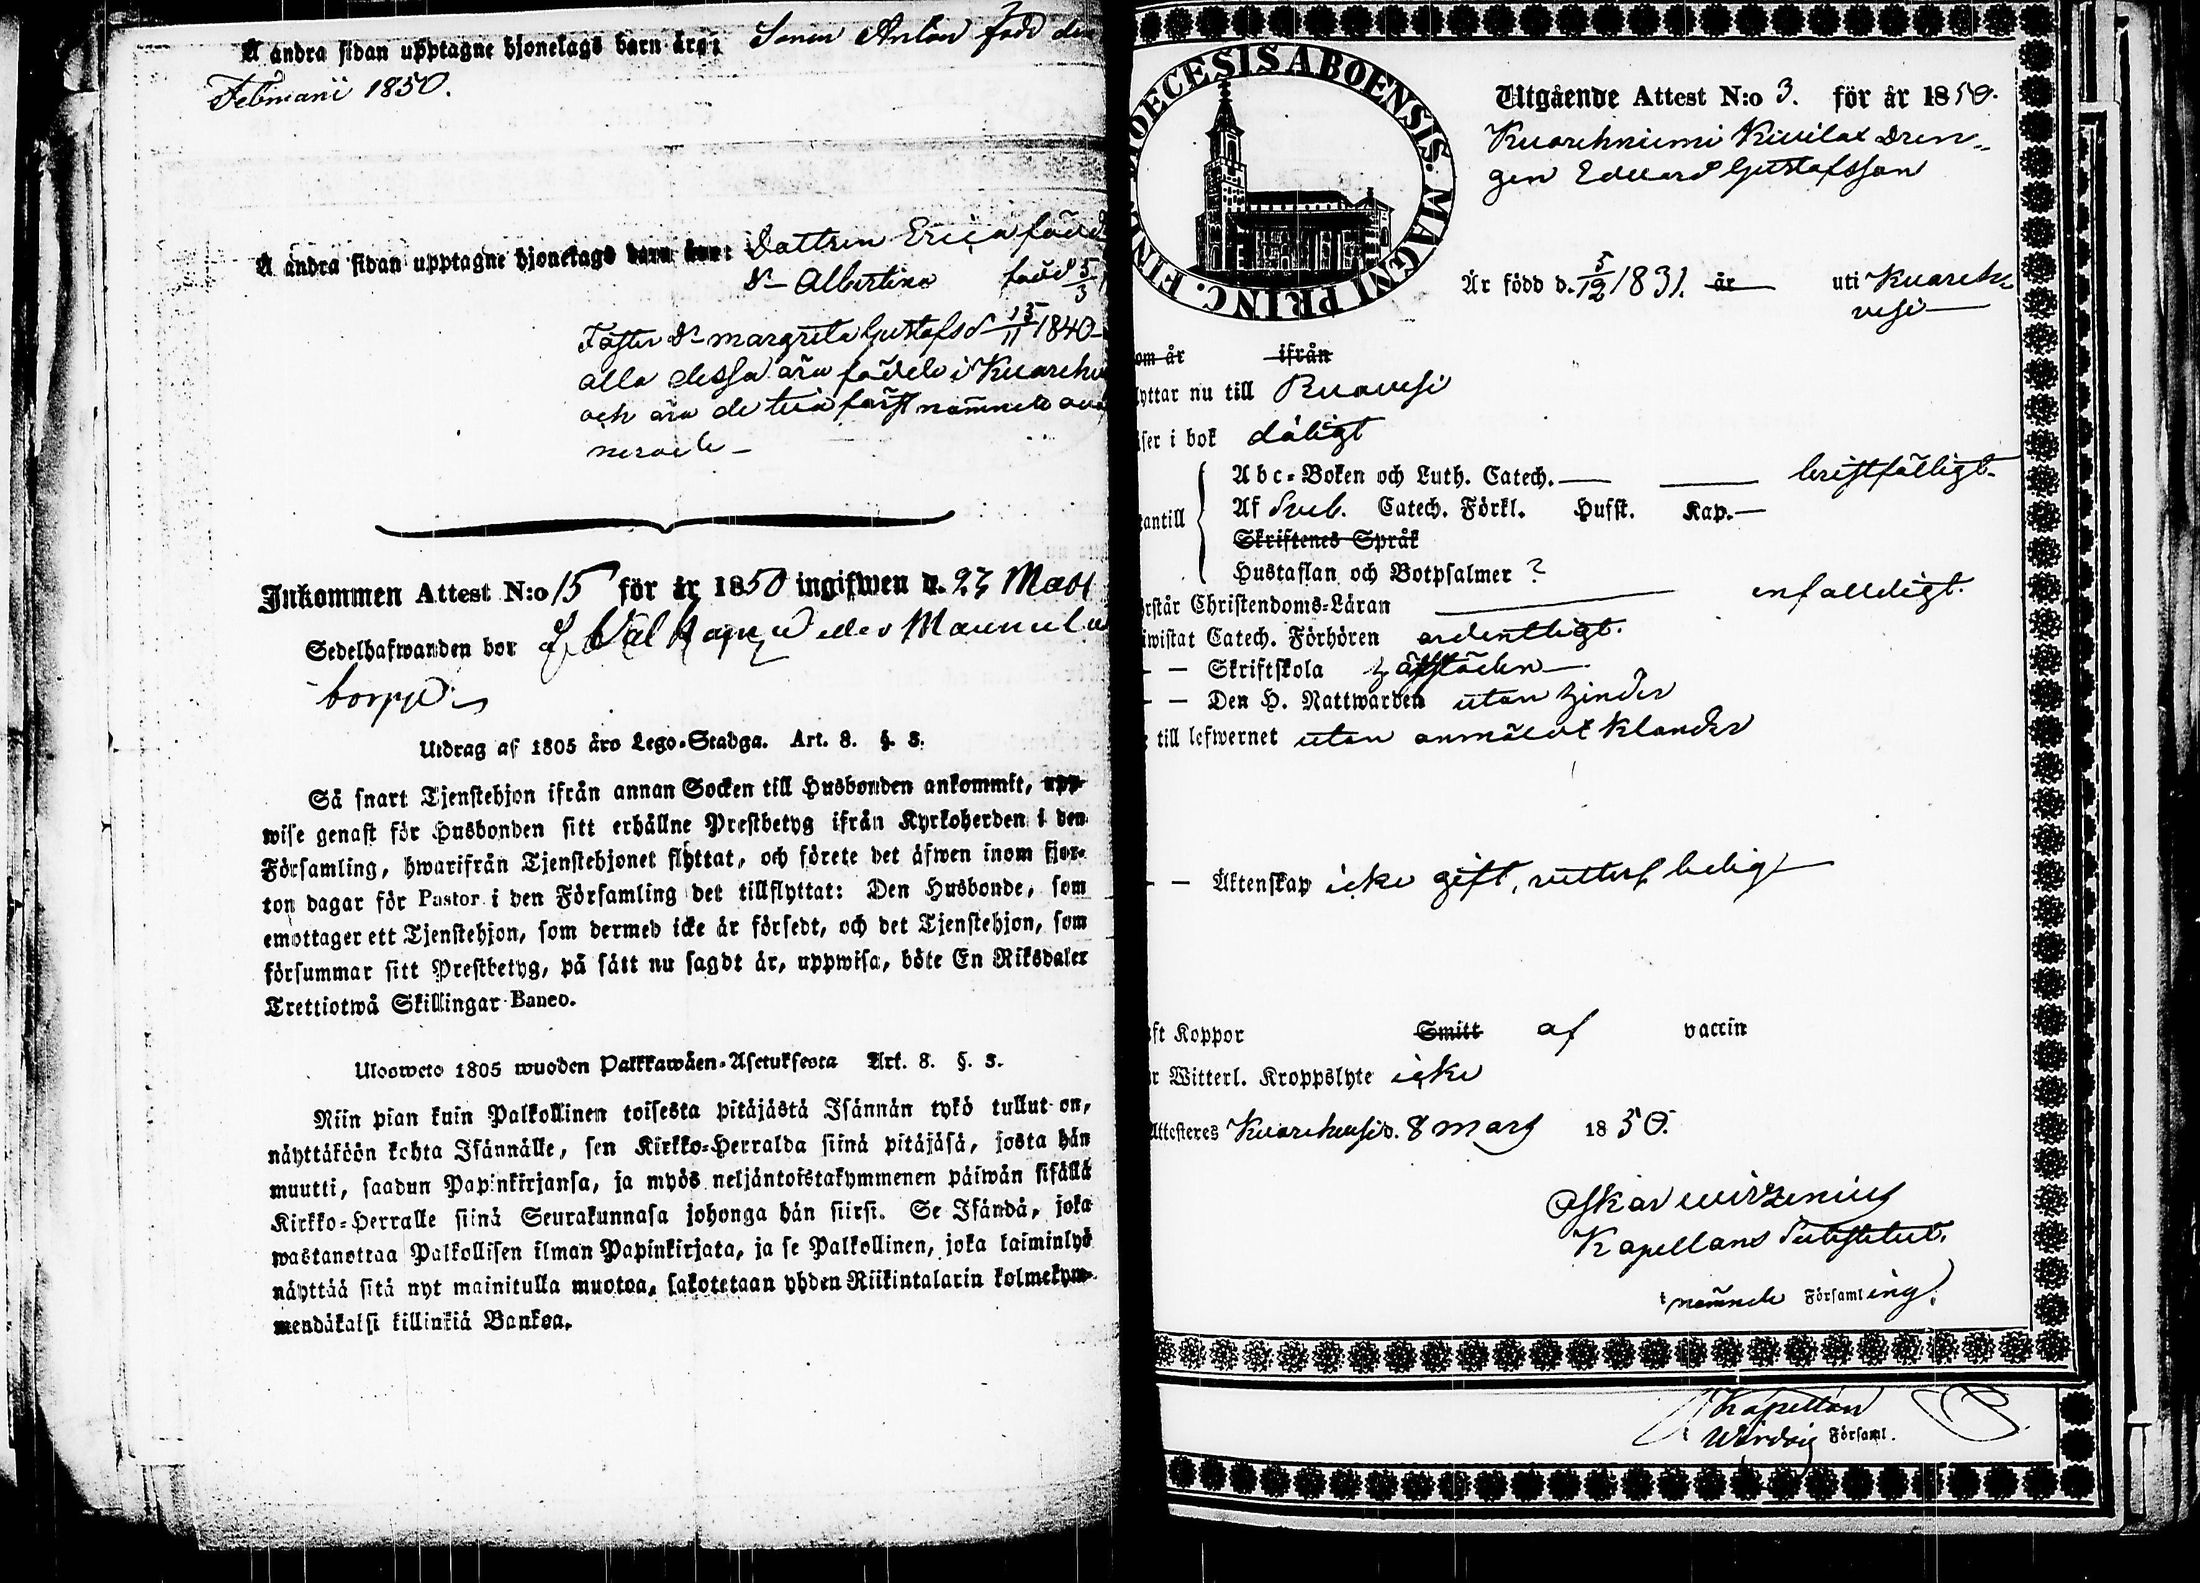 Å andra sidan upptagne hjonelags barn äro: Sonen Anton född den
Februarii 1850.
Å andra sidan upptagne hjonelags barn äro: Dottren Erica född
Dr Albertina född 5/3
Foster Dr Margreta Gustafsd 15/11 1840
alla dessa äro födde i Kuareh
och äro de två först nämnde
nerade
Inkommen Attest N:o 15 för år 1850 ingifwen d. 27 Mars
Sedelhafwanden bor
torppa
Utdrag af 1805 års Lego-Stadga. Art. 8. §. 3.
Så snart Tjenstehjon ifrån annan Socken till Husbonden ankommit, upp-
wise genast för Husbonden sitt erhållne Prestbetyg ifrån Kyrkoherden i den
Församling, hwarifrån Tjenstehjonet flyttat, och förete det äfwen inom fjor-
ton dagar för Pastor i den Församling det tillflyttat: Den Husbonde, som
emottager ett Tjenstehjon, som dermed icke är försedt, och det Tjenstehjon, som
försummar sitt Prestbetyg, på sätt nu sagdt är, uppwisa, böte En Riksdaler
Trettiotwå Skillingar Banco.
Ulosweto 1805 wuoden Palkkawäen-Asetuksesta Art. 8. §. 3.
Niin pian kuin Palkollinen toisesta pitäjästä Isännän tykö tullut on,
näyttäköön kohta Isännälle, sen Kirkko-Herralda siinä pitäjäsä, josta hän
muutti, saadun Papinkirjansa, ja myös neljäntoistakymmenen päiwän sisällä
Kirkko-Herralle siinä Seurakunnasa johonga hän siirsi. Se Isändä, joka
wastanottaa Palkollisen ilman Papinkirjata, ja se Palkollinen, joka laiminlyö
näyttää sitä nyt mainitulla muotoa, sakotetaan yhden Riikintalarin kolmekym-
mendäkaksi killinkiä Bankoa.
DIOECESIS ABOENSIS. MAGNI PRINC. FINL.
Utgående Attest N:o 3. för år 1850.
Kuarehniemi Kivilax Drän-
gen Edvard Gustafsson
Är född d. 5/12 1831. år uti Kuareh
vesi
om år ifrån
yttar nu till Ruovesi
äser i bok dåligt
Abc-Boken och Luth. Catech. bristfälligt.
tantill Af Sveb. Catech. Förkl. Hufst. Kap.
Skriftenes Språk
Hustaflan och Botpsalmer ?
rstår Christendoms-Läran enfaldigt.
iwistat Catech. Förhören ordentligt.
— — Skriftskola
— — Den H. Nattwarden utan hinder
till lefwernet utan anmäldt klander
— — Äktenskap icke gift, vitterl ledig
ft Koppor Smitt af vaccin
r Witterl. Kroppslyte icke
Attesteres Kuarehvesi d. 8 Mars 1850.
Oskar Wirzenius
Kapellans Substitut.
i nämnde Församling.
Kapellan
i Wördig Församl.